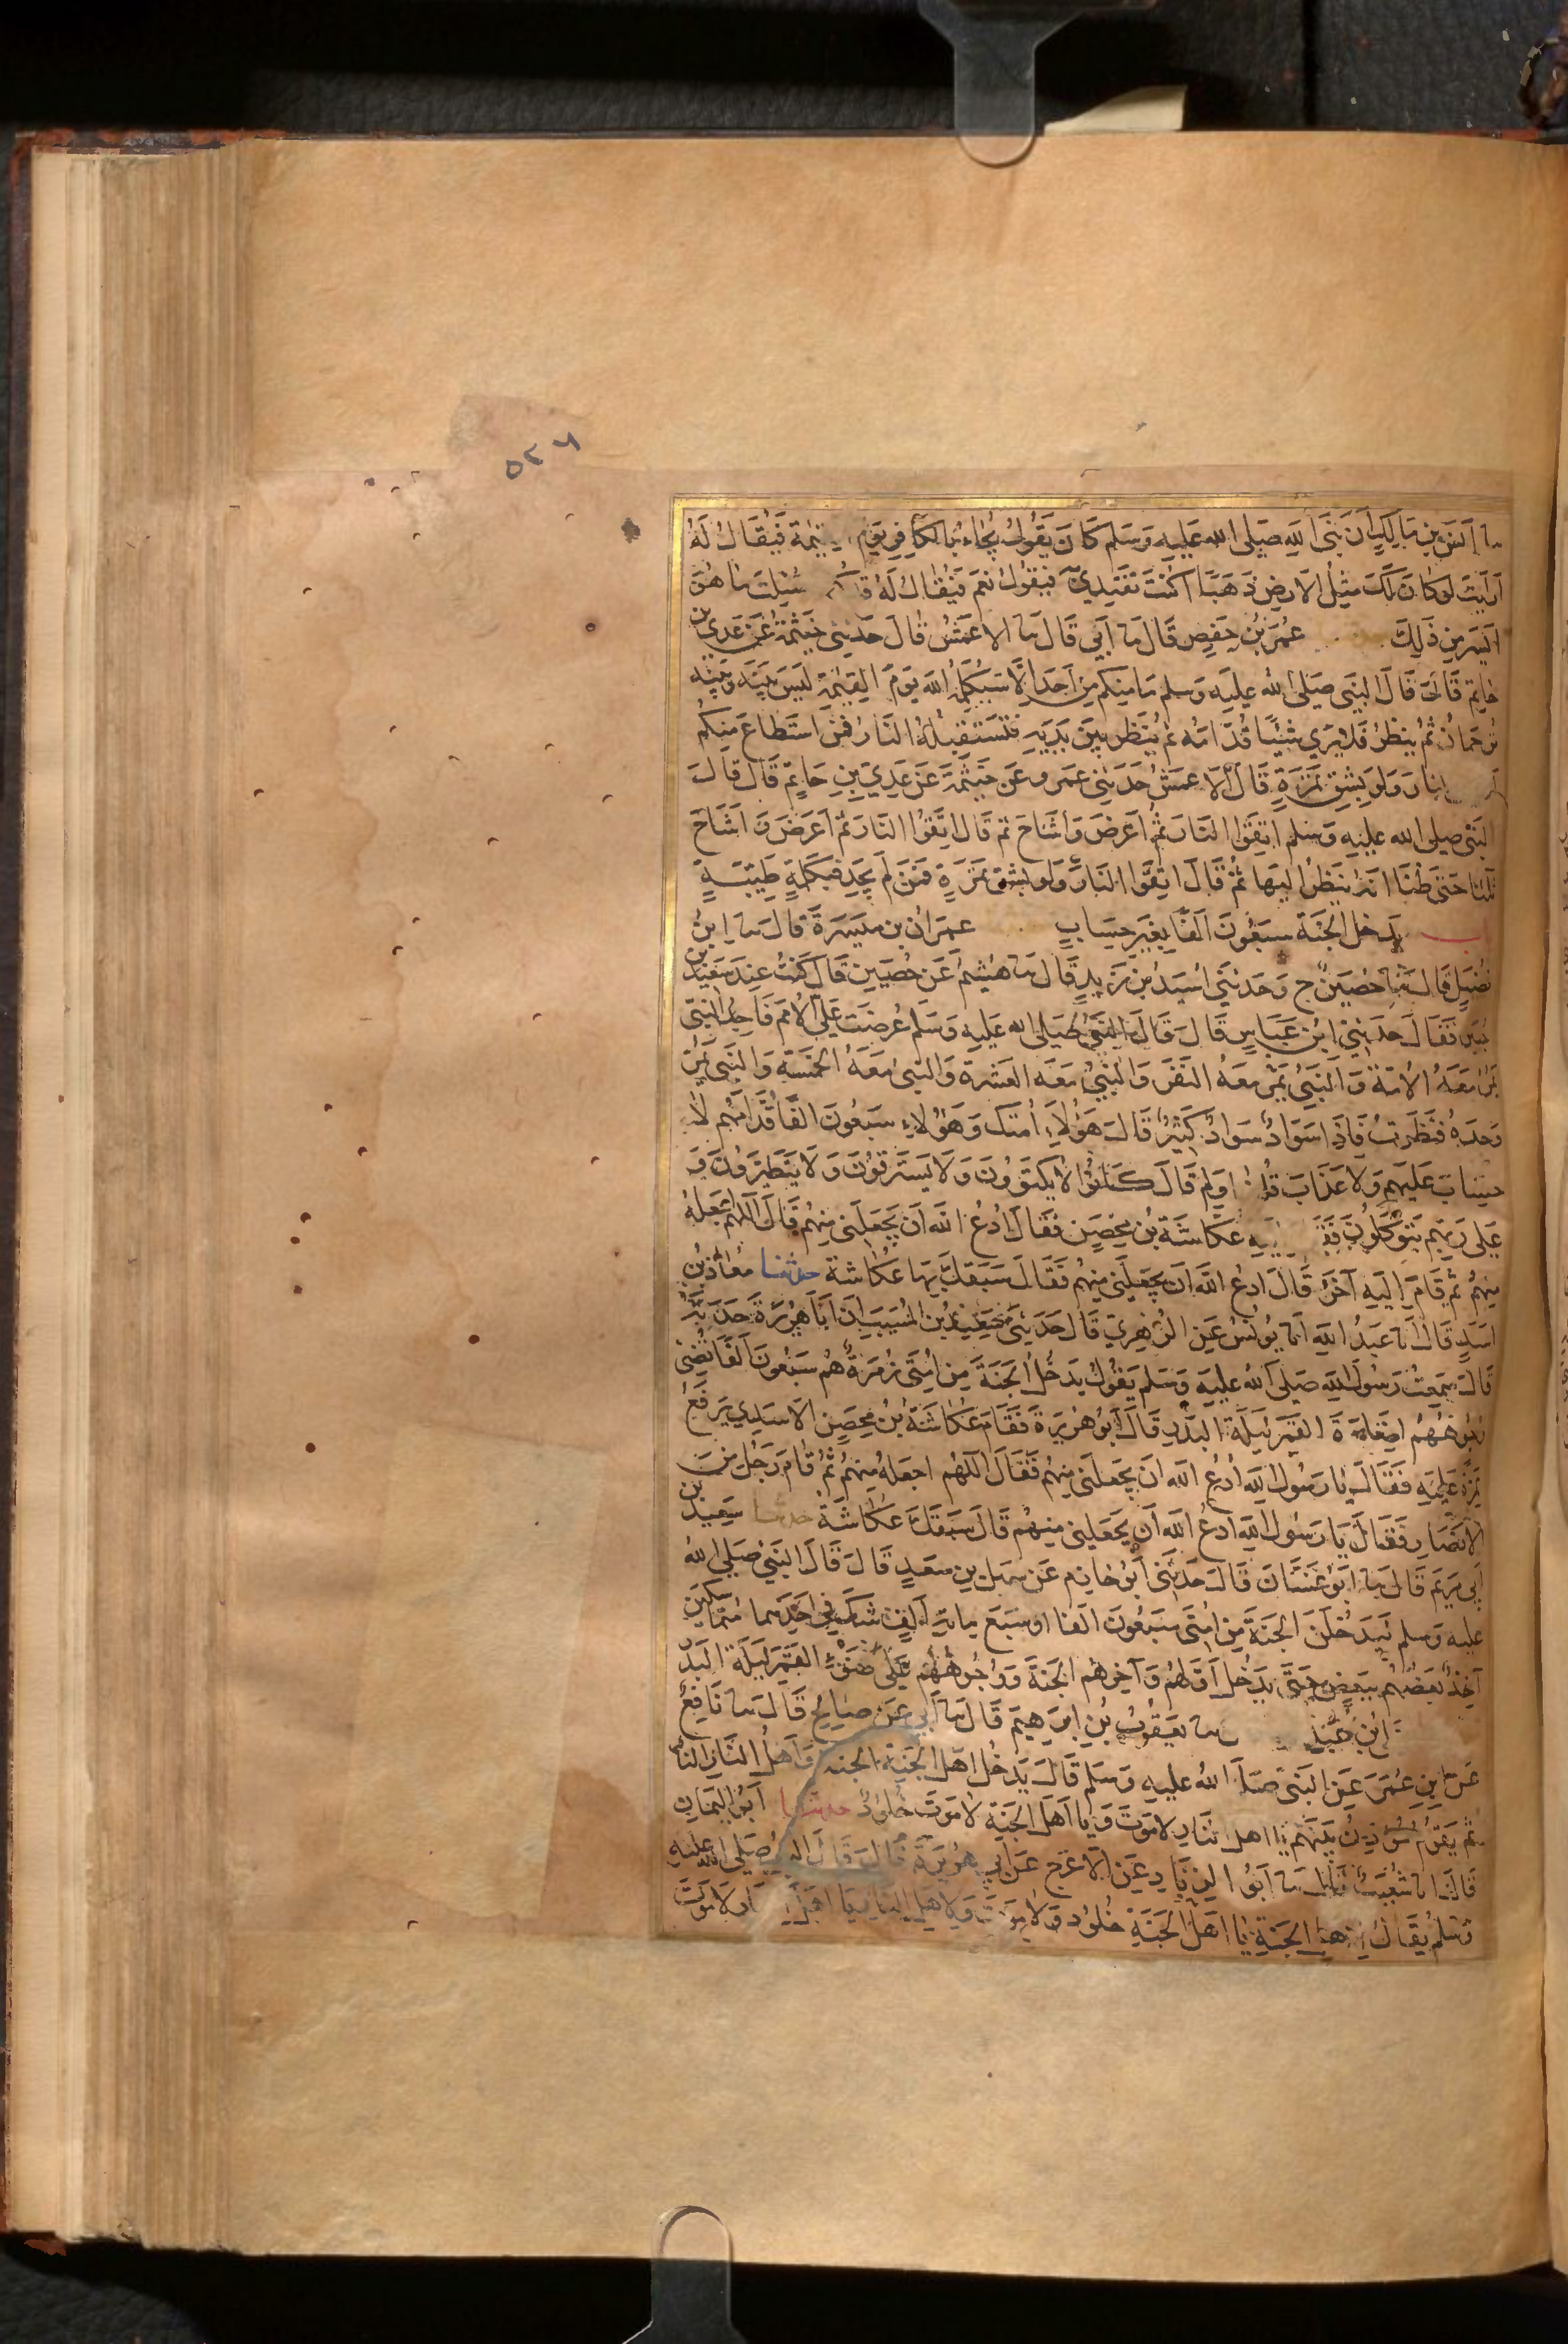 ٥٢٦
نا اَنَسُ بنُ مَالِكٍ اَنَّ نَبِيَّ اللهِ صَلى الله عَليهِ وَسَلم كَانَ يَقُولُ يُجَاءُ بِالكَافِرِ يَوْمَ فَيُقَالُ لَهُ
اَرَأيتَ لَو كَانَ لَكَ مِثلُ الاَرضِ ذَهَبًا اَكُنتَ تَفتَدِي فَيَقُولُ نَعَم فَيُقَالُ لَهُ سُئِلتَ مَا هُوَ
اَيسَرُ مِن ذَلِكَ عُمَرُ بنُ حَفصٍ قَالَ نا اَبِي قَالَ نا الاعمَشُ قالَ حَدثني خَيثَمَةُ عَن عَدِي بن
حَاتِمٍ قَالَ قَالَ النبي صَلى الله عليه وسلم مَا مِنكم مِن اَحَدٍ اِلَّا سَيُكَلِّمُهُ اللهُ يَومَ القِيمَةِ لَيسَ بَينَه وَبَينَه
تُرجمَانٌ ثُم يَنظُرُ فَلا يَرَي شَيئًا قُدَّامَهُ ثم يَنظُر بَينَ يَدَيهِ فَتَستَقبِلُهُ النَّارُ فَمَنِ استَطَاعَ مِنكُم
النارَ وَلَو بِشِقِّ تَمرَةٍ قَالَ الاعمَشُ حَدثني عمرو عَن خَيثَمَةَ عَن عَدِيّ بنِ حَاتِمٍ قَالَ قَالَ
النبي صلى الله عليه وسلم اتقوا النَّارَ ثُمَّ اَعرَضَ وَاَشَاحَ ثم قَالَ اتَّقُوا النَّارَ ثُمّ اَعرَضَ وَاَشَاحَ
ثَلاثا حَتَّى ظَنَنَّا اَنَّهُ يَنظُرُ اليهَا ثُمَّ قَالَ اتَّقُوا النَّارَ وَلَو بِشِقِّ تَمرَةٍ فَمَن لَم يَجِد فَبِكَلِمَةٍ طَيِّبَةٍ
باب يَدخُل الجَنّةَ سَبعُونَ اَلفًا بِغَيرِ حِسَابٍ عمرَانُ بن مَيسَرَةَ قَالَ نا ابنُ
فُضَيلٍ قَالَ نا حُصَينٌ ح وَحَدثني اَسيدُ بن زَيدٍ قَالَ نا هُشَيمٌ عَن حُصَينٍ قَالَ كُنتُ عِندَ سَعِيدِ بن
جُبَيرٍ فَقَالَ حَدثني ابن عَبَّاسٍ قَالَ قَالَ النَّبِيُّ صَلى الله عليه وَسَلم عُرِضَت عَلَيَّ الاُمَمُ فَاجِدُ النبيّ
يَمُرُّ مَعَهُ الاُمَّةُ وَالنَّبِيُّ يَمُرُّ معَهُ النَّفَرُ وَالنبيُّ معَهُ العَشَرة وَالنبيُّ مَعَهُ الخَمسَةُ وَالنَّبِيُّ يَمُرُّ
وَحدَهُ فَنَظَرتُ فَاِذَا سَوَادٌ كَثِيرٌ قَالَ هَؤُلاَءِ اُمَّتُكَ وَهَؤُلاءِ سَبعُونَ اَلفًا قُدَّامَهُم لاَ
حِسَابَ عَلَيهِم وَلاَ عَذَابَ قُلتُ وَلِمَ قَالَ كَانُوا لاَ يَكتَوُونَ وَلاَ يَستَرقُونَ وَلاَ يَتَطَيَّرُونَ وَ
عَلى رَبِّهِم يَتَوَكَّلُونَ عُكَّاشَةُ بُن مِحصَنٍ فَقَالَ ادعُ اللهَ اَن يَجعَلَنِي مِنهُم قَالَ اَللهُمَّ اجعَلهُ
مِنهُم ثُمَّ قَامَ اِلَيهِ آخَرُ قَالَ ادعُ اللهَ اَن يَجعَلَنِي مِنهُم فَقَالَ سَبَقَكَ بِهَا عُكَاشَة حدثنا معَاذُ بن
اَسَدٍ قَالَ اَنا عَبدُ اللهِ اَنا يُونُسُ عَن الزُّهرِيّ قَالَ حَدَثَني سَعِيدُ بن المُسَيَّبِ اَنَّ اَبَا هُرَيرَةَ حَدَّثَهُ
قَالَ سَمِعتُ رَسُولَ اللهِ صَلى اللهُ عليهِ وَسَلم يَقُولُ يَدخُلُ الجَنَّةَ مِن اُمَّتِي زُمرَةٌ هُم سَبعُونَ اَلفًا تُضِيءُ
وُجُوهُهُم اِضَاءَةَ القَمَرِ لَيلَةَ البَدرِ قَالَ اَبُو هُرَيرَةَ فَقَامَ عُكَاشَةُ بنُ مِحصَنٍ الاسَدِي يَرفَعُ
نَمِرَةً عَلَيهِ فَقَالَ يَا رَسُولَ اللهِ اُدعُ اللهَ اَن يَجعَلَنِي مِنهُم فَقَالَ اللهُم اجعَلهُ مِنهُم ثُمَّ قَامَ رَجُلٌ مِنَ
الاَنصَارِ فَقَالَ يَا رَسُولَ اللهِ ادعُ اللهَ اَن يَجعَلَني مِنهُم قَالَ سَبَقَكَ عُكَاشَةُ حدثنا سَعِيدُ بن
اَبِي مَريَم قَالَ نا اَبُو غَسَّانَ قَالَ حَدثَني اَبُو حَازِم عَن سَهل بنِ سَعدٍ قَالَ قَالَ النبيّ صَلى اللهُ
عليه وَسلم لَيَدخُلَنَّ الجَنَّةَ مِن اُمَّتِي سَبعُونَ الفا او سَبعُ مِايَةِ اَلفٍ شَكَّ فِي اَحَدِهِما مُتَمَاسِكِين
آخِذٌ بَعضُهُم بِبَعضٍ حَتَّى يَدخُل اَوَّلهُم وَآخِرُهُم الجَنَّةَ وَوُجُوهُهُم عَلَى ضَوءِ القَمَرِ لَيلَةَ البَدرِ
نا يَعقُوبُ بنُ اِبرَهِيمَ قَالَ نا اَبِي عَن صَالِحٍ قَالَ نا نَافِعٌ
عَن ابنِ عُمَرَ عَنِ النَبِيّ صَلى اللهُ عليهِ وَسَلم قَالَ يَدخُلُ اهلُ الجَنّةِ الجنة وَاَهلُ النَّارِ النَّار
ثم يَقُومُ مُؤَذِنٌ بَينَهُم يَا اهلَ النَّارِ لاَ مَوتَ وَيَا اَهلَ الجَنَّةِ لاَ مَوتَ خُلُودٌ حدثنا اَبُو اليَمَانِ
قَالَ انا شُعَيبٌ قَالَ نا اَبُو الزِنَادِ عَنِ الاَعرَجِ عَن اَبِي هُرَيرَةَ قَالَ قَالَ النبيُّ صَلى الله عليه
وَسَلم يُقَالُ لِاَهلِ الجَنَّةِ يَا اَهلَ الجَنَّةِ خُلُودٌ وَلاَ مَوتَ وَلِاَهلِ النَّارِ يَا اَهلَ لاَ مَوتَ